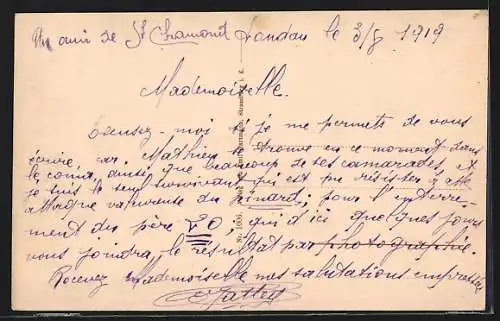 Un ami de St Chamond Landau le 3/8 1919
Mademoiselle.
Excusez-moi si je me permets de vous
écrire, car Mathieu se trouve en ce moment dans
le coma, ainsi que beaucoup de ses camarades, et
je suis le seul survivant qui est pu résister à cette
attaque valeureuse du pinard; pour l'enterre-
ment du père qui d'ici quelques jours
vous joindra, le résultat par photographie.
Recevez Mademoiselle nos salutations empressées